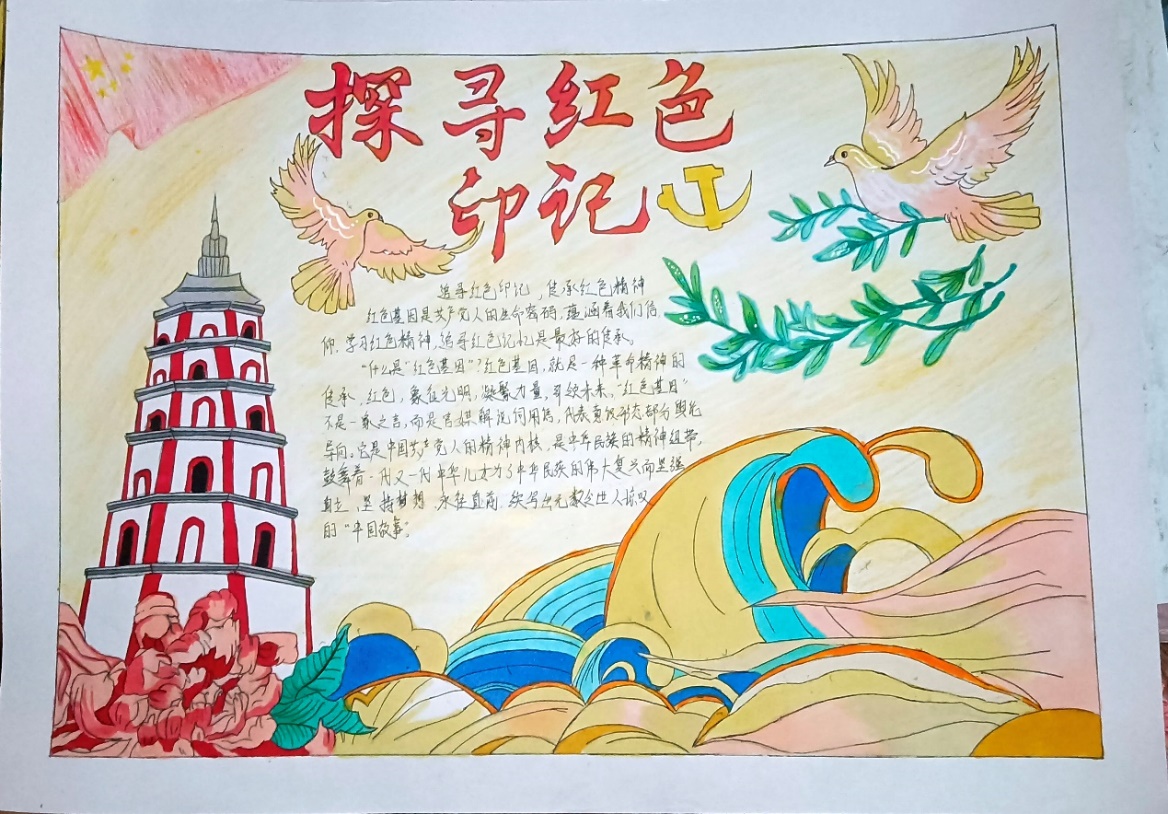 探寻红色
印记
追寻红色印记，传承红色精神
红色基因是共产党人的生命密码，蕴涵着我们信
仰，学习红色精神，追寻红色记忆是最好的传承。
“什么是“红色基因”？红色基因，就是一种革命精神的
传承，红色，象征光明，凝聚力量，引领未来。“红色基因”
不是一家之言，而是官媒解说词用语，代表意识形态部分舆论
导向。它是中国共产党人的精神内核，是中华民族的精神纽带，
鼓舞着一代又一代中华儿女为了中华民族的伟大复兴而坚强
自立，坚持梦想，永往直前，续写出无数令世人惊叹
的“中国故事”。